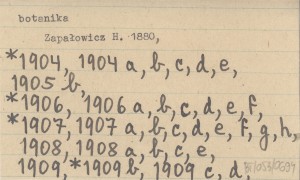 botanika
Zapałowicz H. 1880,
*1904, 1904 a, b, c, d, e,
1905 b,
*1906, 1906 a, b, c, d, e, f,
*1907, 1907 a, b, c, d, e, f, g, h,
1908, 1908 a, b, c, e,
1909, *1909 b, 1909 c, d,